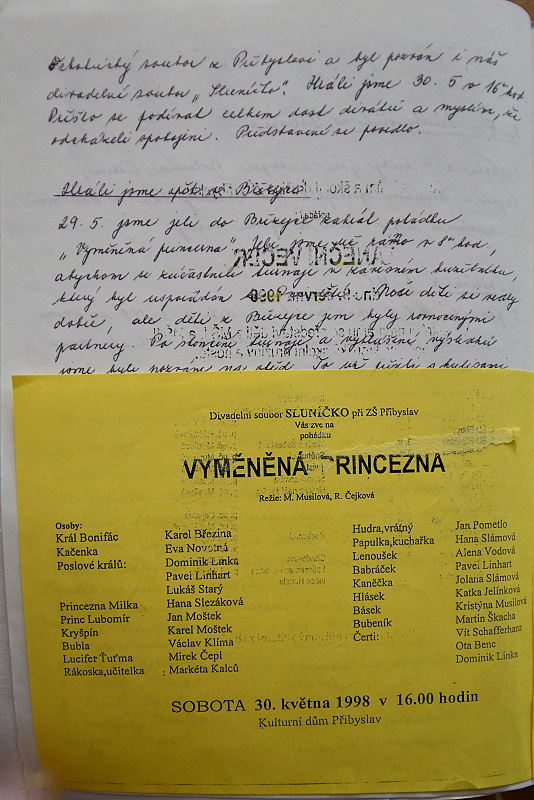 Ochotnický soubor z Přibyslavi a byl pozván i náš
divadelní soubor „Sluníčko". Hráli jsme 30. 5 v 16 hod
Přišlo se podívat celkem dost diváků a myslím, že
odcházeli spokojeni. Představení se povedlo.
Hráli jsme opět ve Březejci
29.5. jsme jeli do Březejce zahrát pohádku
„Vyměněná princezna". Jeli jsme už ráno v 8 hod,
abychom se zúčastnili turnaje v
který byl uspořádán Naše děti se
dobře, ale děti z Březejce jim byly rovnocennými
partnery. Po skončení turnaje a vyhlášení výsledků
jsme byli pozváni na oběd. To už
Divadelní soubor SLUNÍČKO při ZŠ Přibyslav
Vás zve na
pohádku
VYMĚNĚNÁ PRINCEZNA
Režie: M. Musilová, R. Čejková
Osoby:
Král Bonifác Karel Březina
Kačenka Eva Novotná
Poslové králů: Dominik Linka
Pavel Linhart
Lukáš Starý
Princezna Milka Hana Slezáková
Princ Lubomír Jan Moštek
Kryšpín Karel Moštek
Bubla Václav Klíma
Lucifer Ťuťma Mirek Čepl
Rákoska,učitelka : Markéta Kalců
Hudra,vrátný Jan Pometlo
Papulka,kuchařka Hana Slámová
Lenoušek Alena Vodová
Babráček Pavel Linhart
Kaněčka Jolana Slámová
Hlásek Katka Jelínková
Básek Kristýna Musilová
Bubeník Martin Škacha
Čerti: Vít Schafferhanz
Ota Benc
Dominik Linka
SOBOTA 30. května 1998 v 16.00 hodin
Kulturní dům Přibyslav